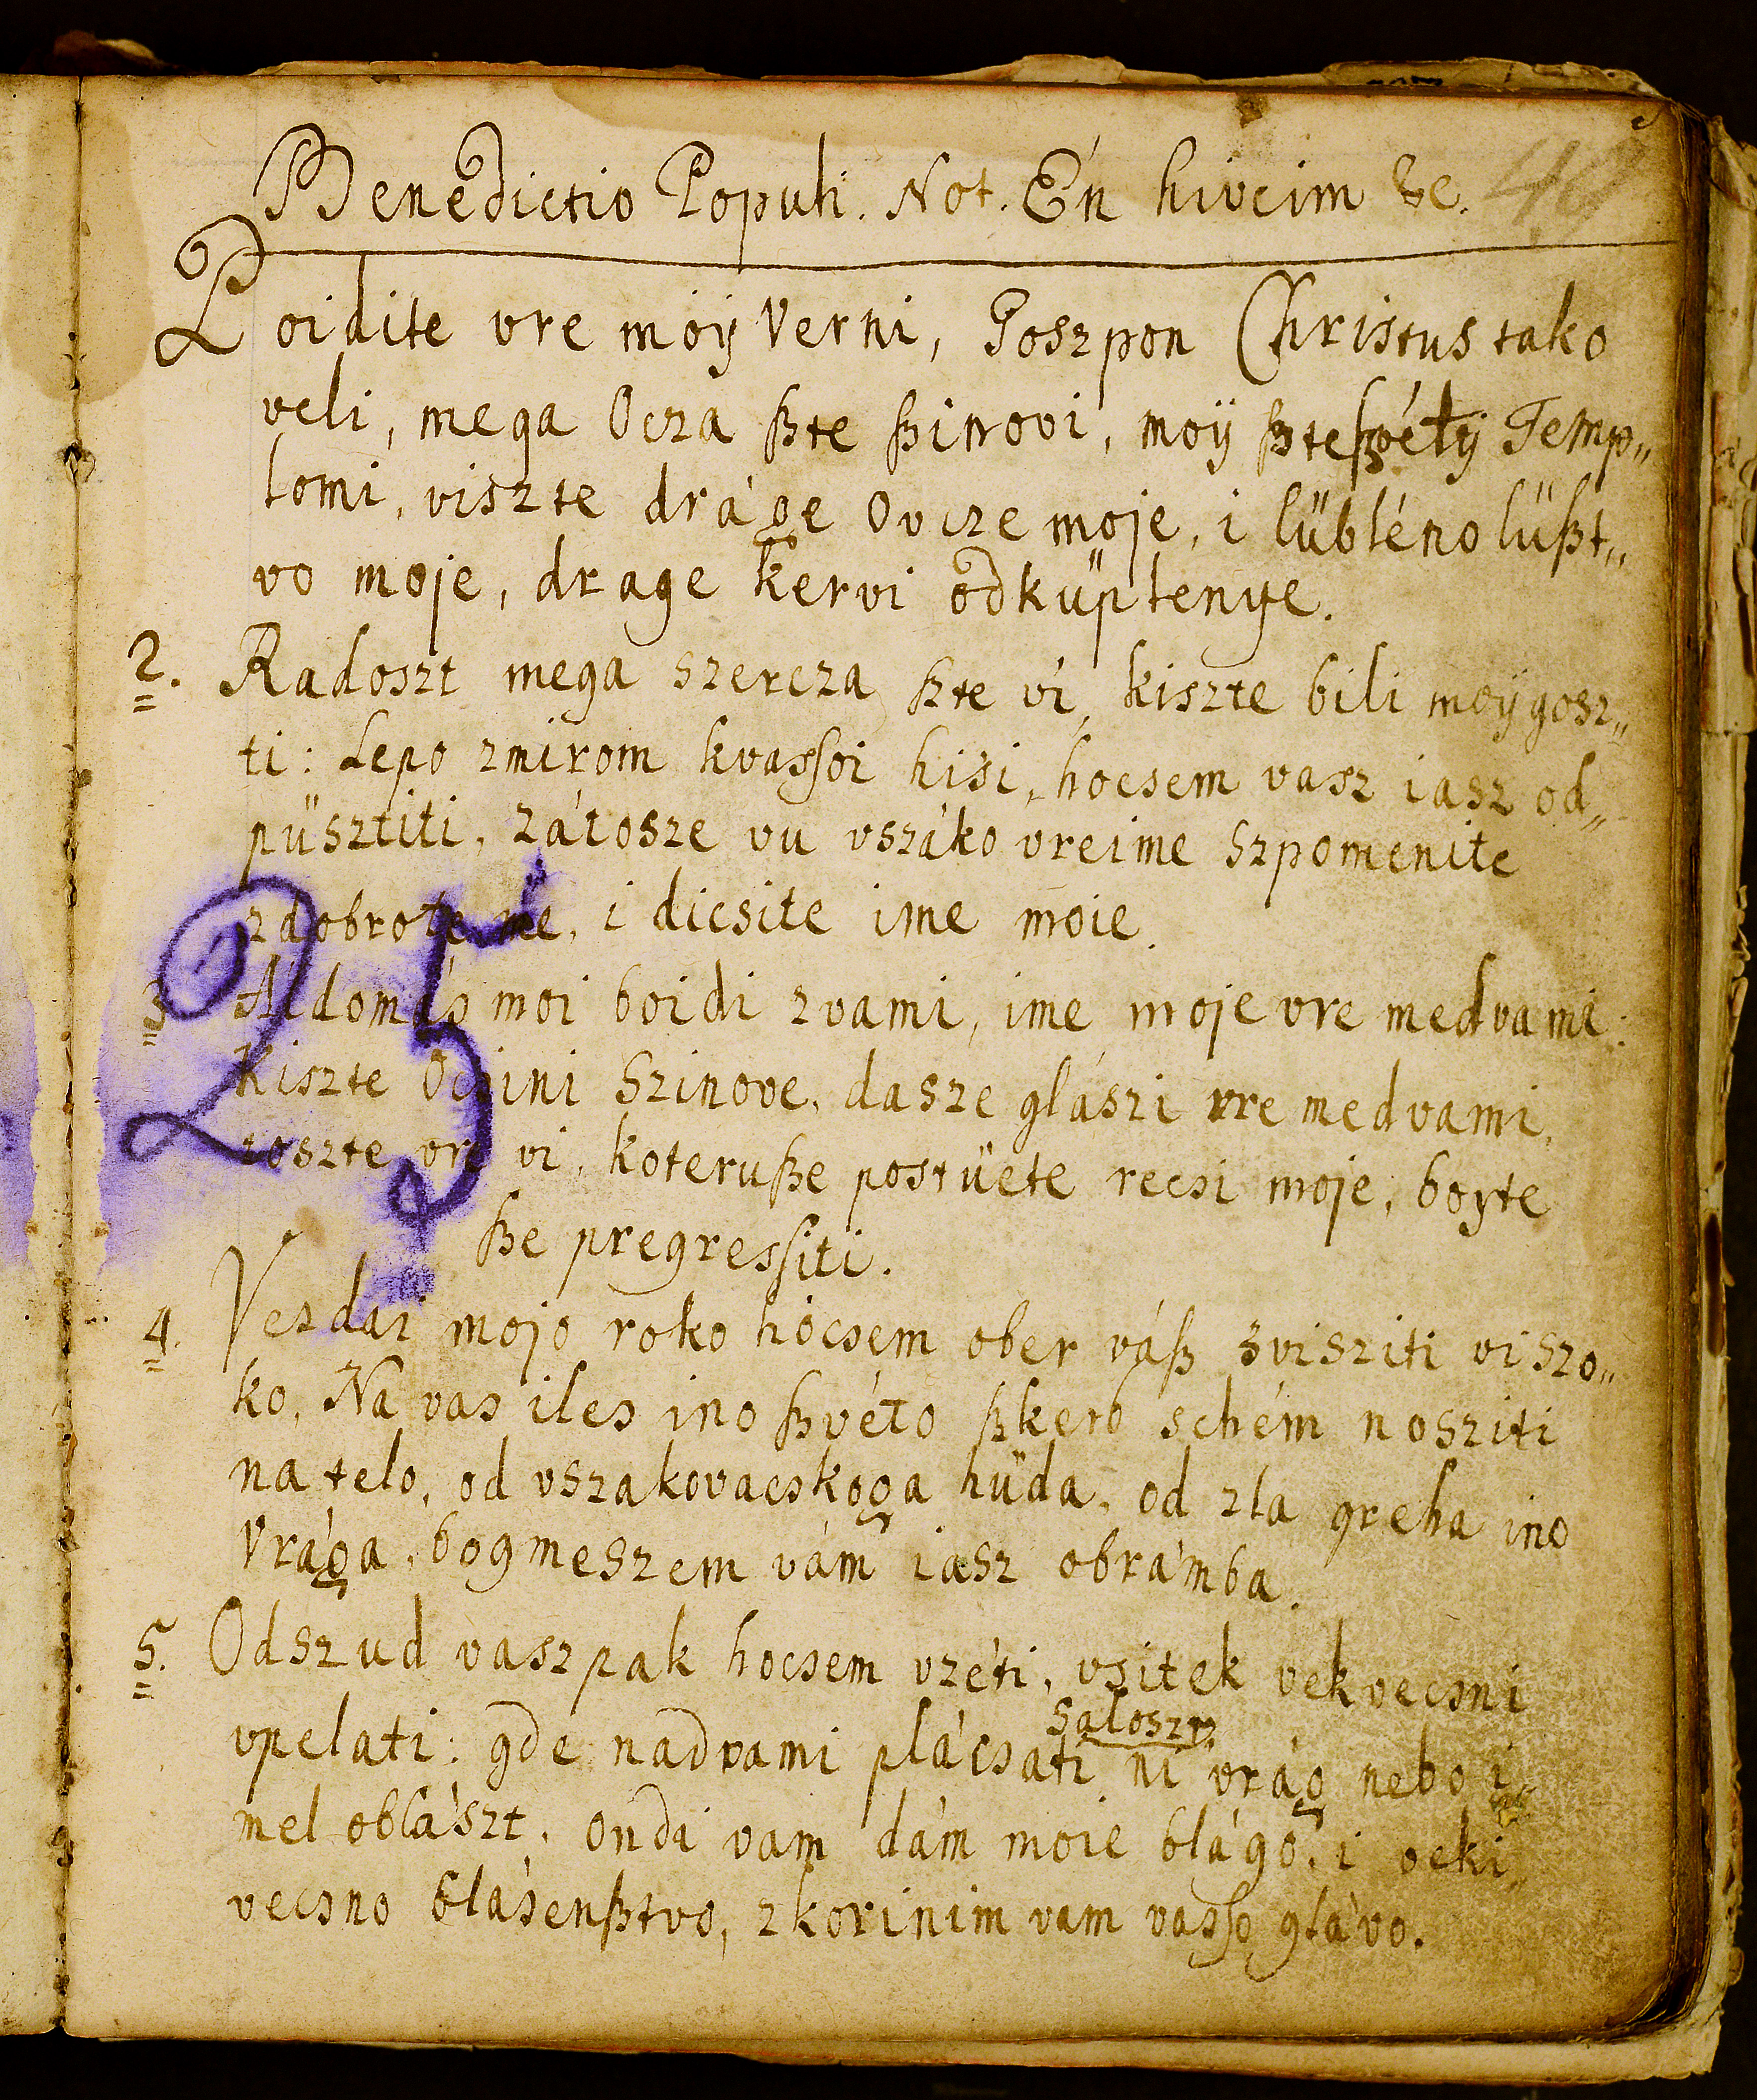 Benedictio Populi. Not. Én hiveim &c.
Poidite vre moÿ Verni, Goszpon Christus tako
veli, mega Ocza ßte ßinovi, moÿ ßte ßvétÿ Temp„
lomi, viszte dráge Ovcze moje, i lübléno lüßt„
vo moje, drage kervi odküplenye.
2. Radoszt mega szercza ßte ví, kiszte bili moÿ gosz„
ti: Lepo zmirom kvassoi hisi, hocsem vasz iasz od„
püsztiti, zátosze vu vszáko vreime szpomenite
z dobrote me, i dicsite ime moie.
3. Áldomás moi boidi zvami, ime moje vre medvami:
Kiszte Ocsini Szinove, dasze glászi vre medvami,
toszte vre vi, koteruße postüete recsi moje, boyte
ße pregressiti.
4. Vezdai mojo roko hócsem ober váß zvisziti viszo„
ko, Na vas iles ino ßvéto ßkerb schém nosziti
na telo, od vszakovacskoga hüda, od zla greha ino
Vrága, bogmeszem vám iasz obrámba.
5. Odszud vaszpak hocsem vzéti, vsitek vekvecsni
vpelati: gde nadvami plácsati
saloszt
ni vrág nebo i„
mel oblászt, ondi vam dám moie blágo, i veki„
vecsno blásenßtvo, zkorinim vam vasso glávo.
25